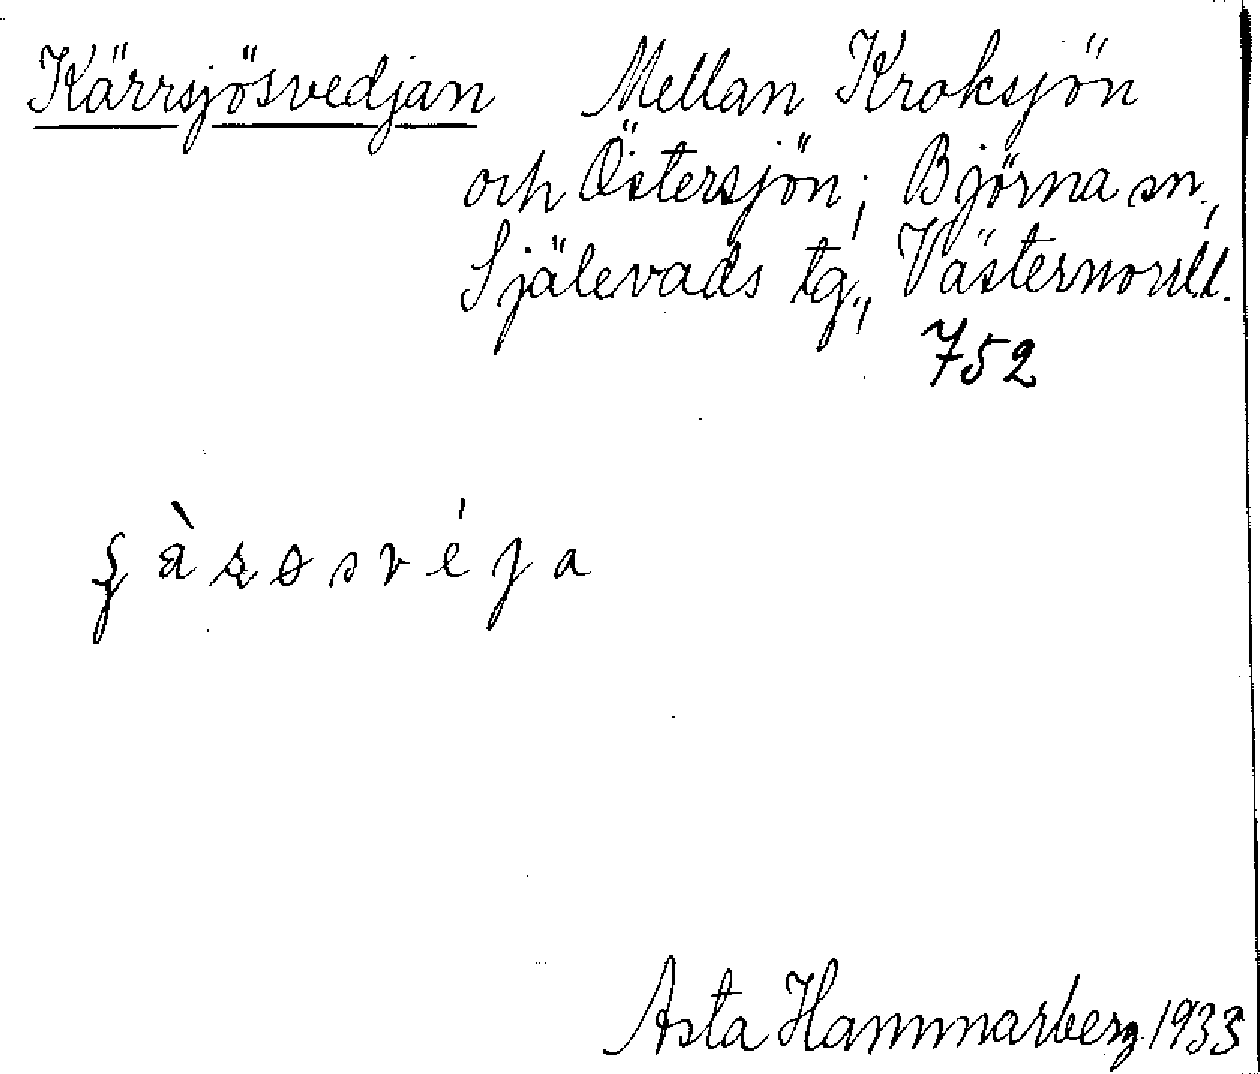 Kärrsjösvedjan Mellan Kroksjön
och Östersjön; Björna sn.,
Själevads tg., Västernorrl.
752
Asta Hammarberg 1933